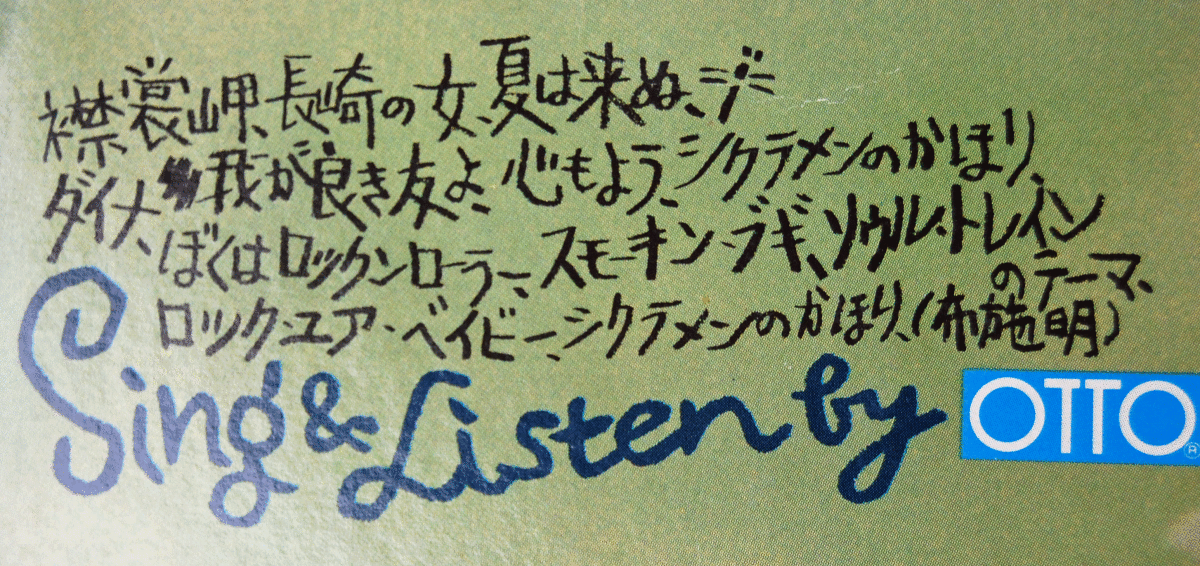 襟裳岬、長崎の女、夏は来ぬ、ジ
ダイメ、我が良き友よ、心もよう、シクラメンのかほり、
ぼくはロックンローラー、スモーキン・ブギ、ソウル・トレイン
のテーマ、
ロック・ユア・ベイビー、シクラメンのかほり、(布施明)
Sing & Listen by OTTO®